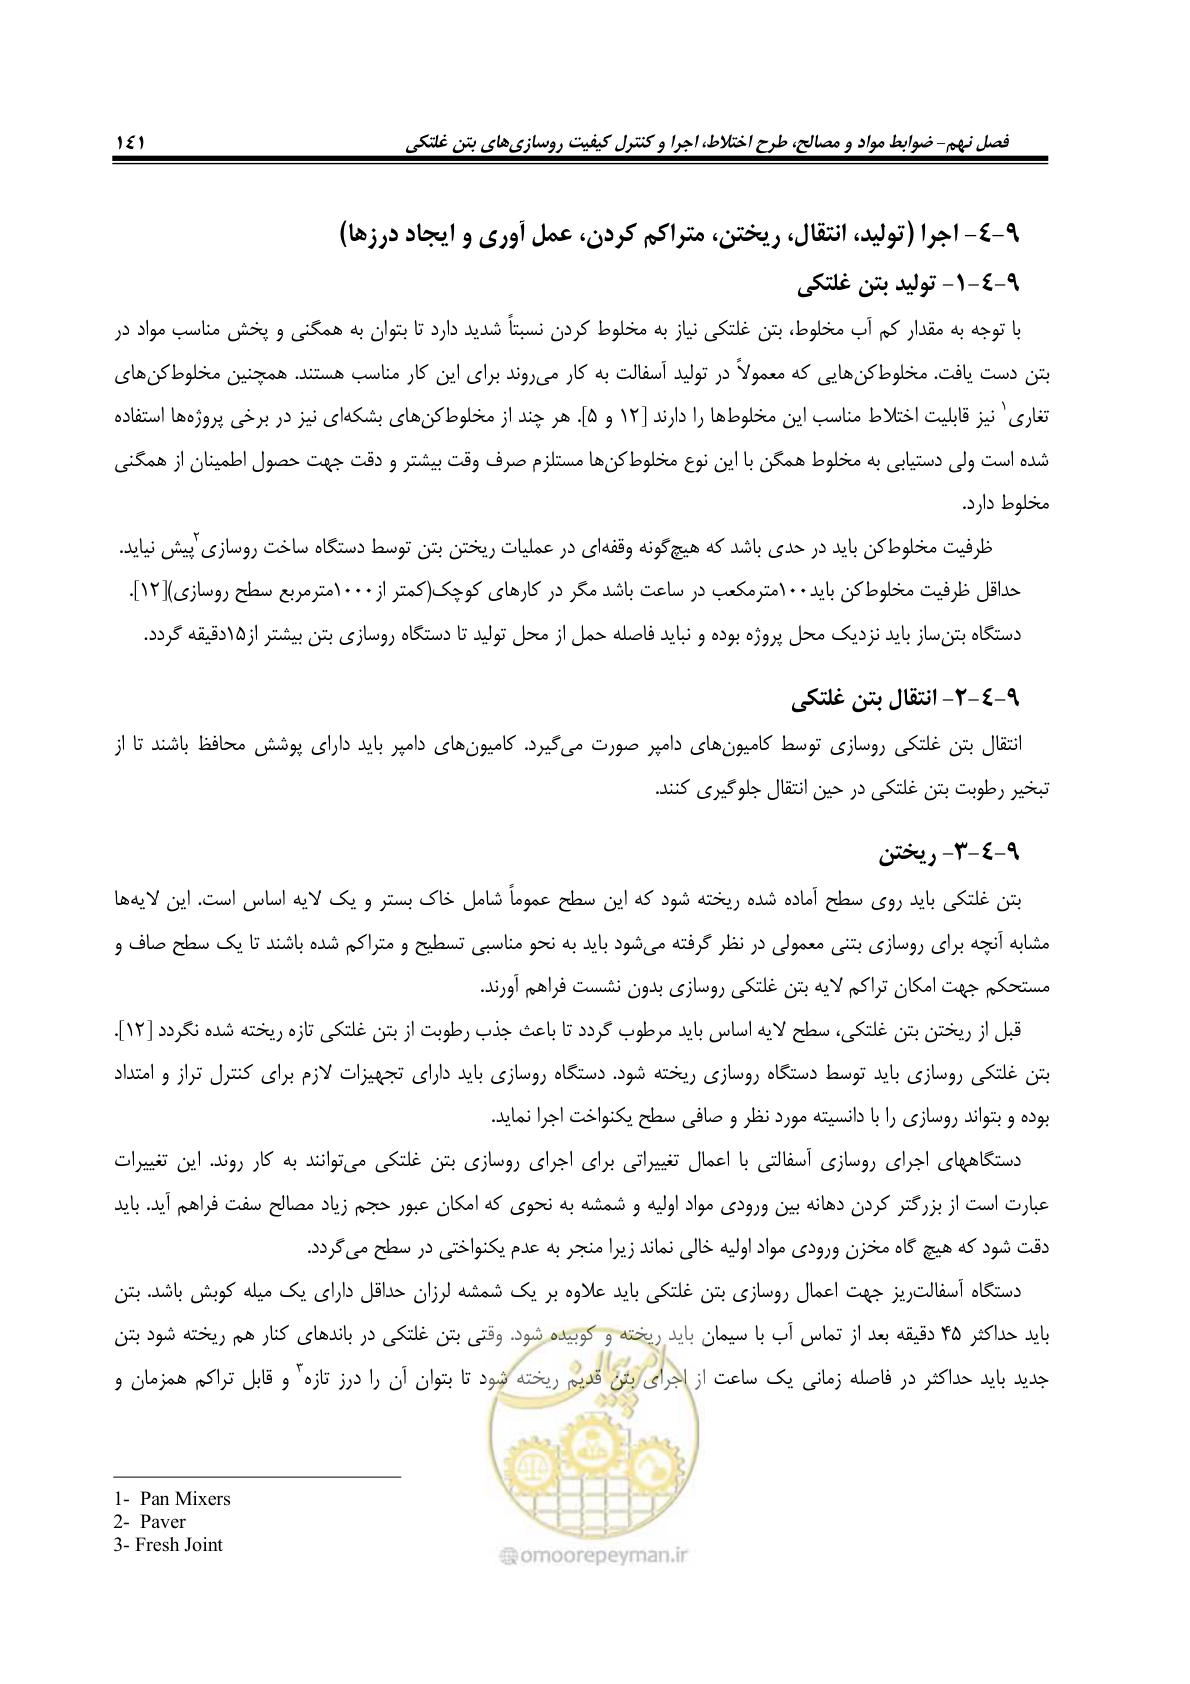 فصل نهم- ضوابط مواد و مصالح، طرح اختلاط، اجرا و کنترل کیفیت روسازی‌های بتن غلتکی ۱۴۱
۹-۴- اجرا (تولید، انتقال، ریختن، متراکم کردن، عمل آوری و ایجاد درزها)
۹-۴-۱- تولید بتن غلتکی
با توجه به مقدار کم آب مخلوط، بتن غلتکی نیاز به مخلوط کردن نسبتاً شدید دارد تا بتوان به همگنی و پخش مناسب مواد در
بتن دست یافت. مخلوط‌کن‌هایی که معمولاً در تولید آسفالت به کار می‌روند برای این کار مناسب هستند. همچنین مخلوط‌کن‌های
تغاری۱ نیز قابلیت اختلاط مناسب این مخلوط‌ها را دارند [۱۲ و ۵]. هر چند از مخلوط‌کن‌های بشکه‌ای نیز در برخی پروژه‌ها استفاده
شده است ولی دستیابی به مخلوط همگن با این نوع مخلوط‌کن‌ها مستلزم صرف وقت بیشتر و دقت جهت حصول اطمینان از همگنی
مخلوط دارد.
ظرفیت مخلوط‌کن باید در حدی باشد که هیچ‌گونه وقفه‌ای در عملیات ریختن بتن توسط دستگاه ساخت روسازی۲پیش نیاید.
حداقل ظرفیت مخلوط‌کن باید۱۰۰مترمکعب در ساعت باشد مگر در کارهای کوچک(کمتر از۱۰۰۰مترمربع سطح روسازی)[۱۲].
دستگاه بتن‌ساز باید نزدیک محل پروژه بوده و نباید فاصله حمل از محل تولید تا دستگاه روسازی بتن بیشتر از۱۵دقیقه گردد.
۹-۴-۲- انتقال بتن غلتکی
انتقال بتن غلتکی روسازی توسط کامیون‌های دامپر صورت می‌گیرد. کامیون‌های دامپر باید دارای پوشش محافظ باشند تا از
تبخیر رطوبت بتن غلتکی در حین انتقال جلوگیری کنند.
۹-۴-۳- ریختن
بتن غلتکی باید روی سطح آماده شده ریخته شود که این سطح عموماً شامل خاک بستر و یک لایه اساس است. این لایه‌ها
مشابه آنچه برای روسازی بتنی معمولی در نظر گرفته می‌شود باید به نحو مناسبی تسطیح و متراکم شده باشند تا یک سطح صاف و
مستحکم جهت امکان تراکم لایه بتن غلتکی روسازی بدون نشست فراهم آورند.
قبل از ریختن بتن غلتکی، سطح لایه اساس باید مرطوب گردد تا باعث جذب رطوبت از بتن غلتکی تازه ریخته شده نگردد [۱۲].
بتن غلتکی روسازی باید توسط دستگاه روسازی ریخته شود. دستگاه روسازی باید دارای تجهیزات لازم برای کنترل تراز و امتداد
بوده و بتواند روسازی را با دانسیته مورد نظر و صافی سطح یکنواخت اجرا نماید.
دستگاههای اجرای روسازی آسفالتی با اعمال تغییراتی برای اجرای روسازی بتن غلتکی می‌توانند به کار روند. این تغییرات
عبارت است از بزرگتر کردن دهانه بین ورودی مواد اولیه و شمشه به نحوی که امکان عبور حجم زیاد مصالح سفت فراهم آید. باید
دقت شود که هیچ گاه مخزن ورودی مواد اولیه خالی نماند زیرا منجر به عدم یکنواختی در سطح می‌گردد.
دستگاه آسفالت‌ریز جهت اعمال روسازی بتن غلتکی باید علاوه بر یک شمشه لرزان حداقل دارای یک میله کوبش باشد. بتن
باید حداکثر ۴۵ دقیقه بعد از تماس آب با سیمان باید ریخته و کوبیده شود. وقتی بتن غلتکی در باندهای کنار هم ریخته شود بتن
جدید باید حداکثر در فاصله زمانی یک ساعت از اجرای بتن قدیم ریخته شود تا بتوان آن را درز تازه۳ و قابل تراکم همزمان و
امور پیمان
1- Pan Mixers
2- Paver
3- Fresh Joint
@omoorepeyman.ir